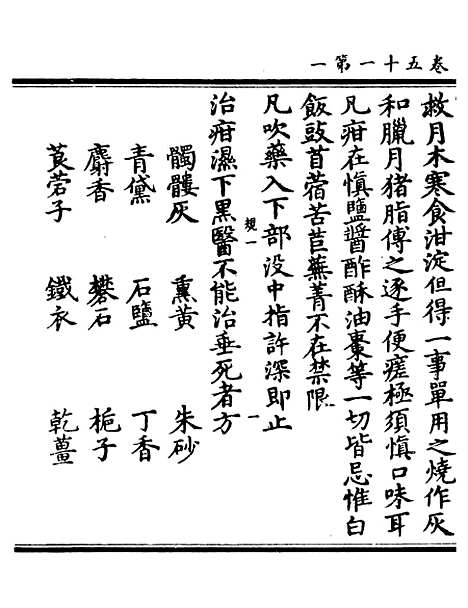 卷五十一第一
救月木寒食泔淀但得一事單用之燒作灰
和臘月猪脂傅之逐手便瘥極須慎口味耳
凡疳在慎鹽醤酢酥油棗等一切皆忌惟白
飯豉苜蓿苦苣蕪菁不在禁限
凡吹藥入下部没中指許深即止
治疳濕下黒醫不能治垂死者方 規一
髑髏灰 熏黄 朱砂
青黛 石鹽 丁香
麝香 礬石 梔子
莨菪子 鐵衣 乾薑